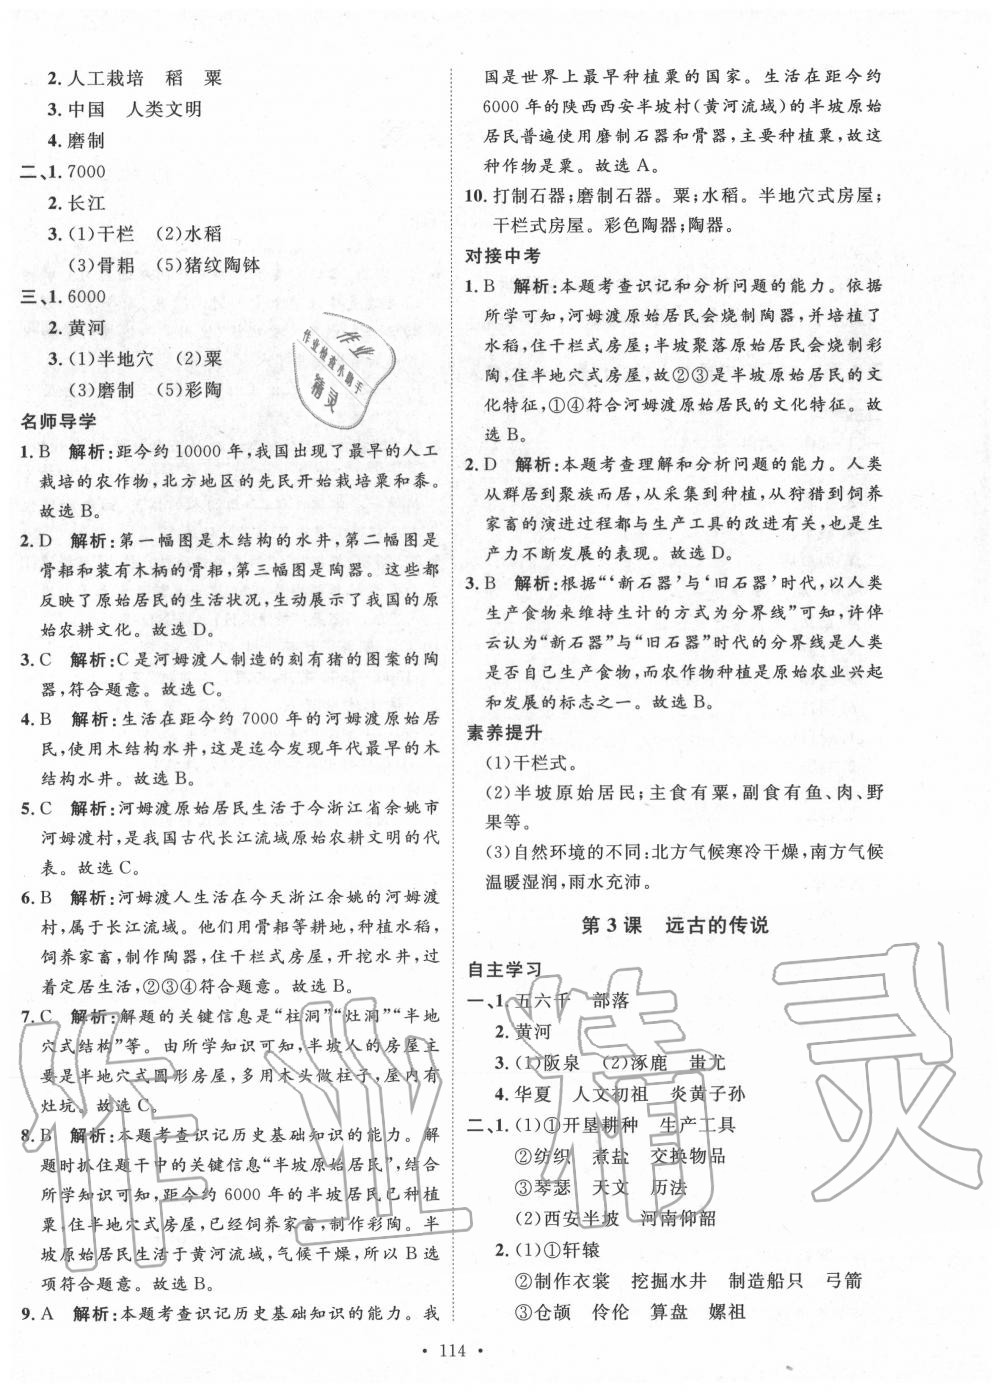 2. 人工栽培 稻 粟
3. 中国 人类文明
4. 磨制
二、1. 7000
2. 长江
3. (1)干栏 (2)水稻
(3)骨耜 (5)猪纹陶钵
三、1. 6000
2. 黄河
3. (1)半地穴 (2)粟
(3)磨制 (5)彩陶
名师导学
1. B 解析:距今约 10000 年,我国出现了最早的人工
栽培的农作物,北方地区的先民开始栽培粟和黍。
故选 B。
2. D 解析:第一幅图是木结构的水井,第二幅图是
骨耜和装有木柄的骨耜,第三幅图是陶器。这些都
反映了原始居民的生活状况,生动展示了我国的原
始农耕文化。故选 D。
3. C 解析:C 是河姆渡人制造的刻有猪的图案的陶
器,符合题意。故选 C。
4. B 解析:生活在距今约 7000 年的河姆渡原始居
民,使用木结构水井,这是迄今发现年代最早的木
结构水井。故选 B。
5. C 解析:河姆渡原始居民生活于今浙江省余姚市
河姆渡村,是我国古代长江流域原始农耕文明的代
表。故选 C。
6. B 解析:河姆渡人生活在今天浙江余姚的河姆渡
村,属于长江流域。他们使用骨耜等耕种,种植水
稻,制作陶器,住干栏式房屋,开挖水井,饲养家畜,过
着定居生活,②③④符合题意。故选 B。
7. C 解析:解题的关键信息是“柱洞”“灶洞”“半地
穴式结构”等。由所学知识可知,半坡人的房屋主
要是半地穴式圆形房屋,多用木头做柱子,屋内有
灶坑。故选 C。
8. B 解析:本题考查识记历史基础知识的能力。解
题时抓住题干中的关键信息“半坡原始居民”,结合
所学知识可知,距今约 6000 年的半坡居民已种植
粟,住半地穴式房屋,已经饲养家畜,制作彩陶。半
坡原始居民生活于黄河流域,气候干燥,所以 B 选
项符合题意。故选 B。
9. A 解析:本题考查识记历史基础知识的能力。我
国是世界上最早种植粟的国家。生活在距今约
6000 年的陕西西安半坡村(黄河流域)的半坡原始
居民普遍使用磨制石器和骨器,主要种植粟,故这
种作物是粟。故选 A。
10. 打制石器;磨制石器。粟;水稻。半地穴式房屋;
干栏式房屋。彩色陶器;陶器。
对接中考
1. B 解析:本题考查识记和分析问题的能力。依据
所学可知,河姆渡原始居民会烧制陶器,并培植了
水稻,住干栏式房屋;半坡聚落原始居民会烧制彩
陶,住半地穴式房屋,故②③是半坡原始居民的文
化特征,①④符合河姆渡原始居民的文化特征。故
选 B。
2. D 解析:本题考查理解和分析问题的能力。人类
从群居到聚族而居,从采集到种植,从狩猎到饲养
家畜的演进过程都与生产工具的改进有关,也是生
产力不断发展的表现。故选 D。
3. B 解析:根据“‘新石器’与‘旧石器’时代,以人类
生产食物来维持生计的方式为分界线”可知,许倬
云认为“新石器”与“旧石器”时代的分界线是人类
是否自己生产食物,而农作物种植是原始农业兴起
和发展的标志之一。故选 B。
素养提升
(1)干栏式。
(2)半坡原始居民;主食有粟,副食有鱼、肉、野
果等。
(3)自然环境的不同:北方气候寒冷干燥,南方气候
温暖湿润,雨水充沛。
第 3 课 远古的传说
自主学习
一、1. 五六千 部落
2. 黄河
3. (1)阪泉 (2)涿鹿 蚩尤
4. 华夏 人文初祖 炎黄子孙
二、1. (1)①开垦耕种 生产工具
②纺织 煮盐 交换物品
③琴瑟 天文 历法
(2)西安半坡 河南仰韶
2. (1)①轩辕
②制作衣裳 挖掘水井 制造船只 弓箭
③仓颉 伶伦 算盘 嫘祖
• 114 •
作业
作业检查小助手
精灵
作业精灵